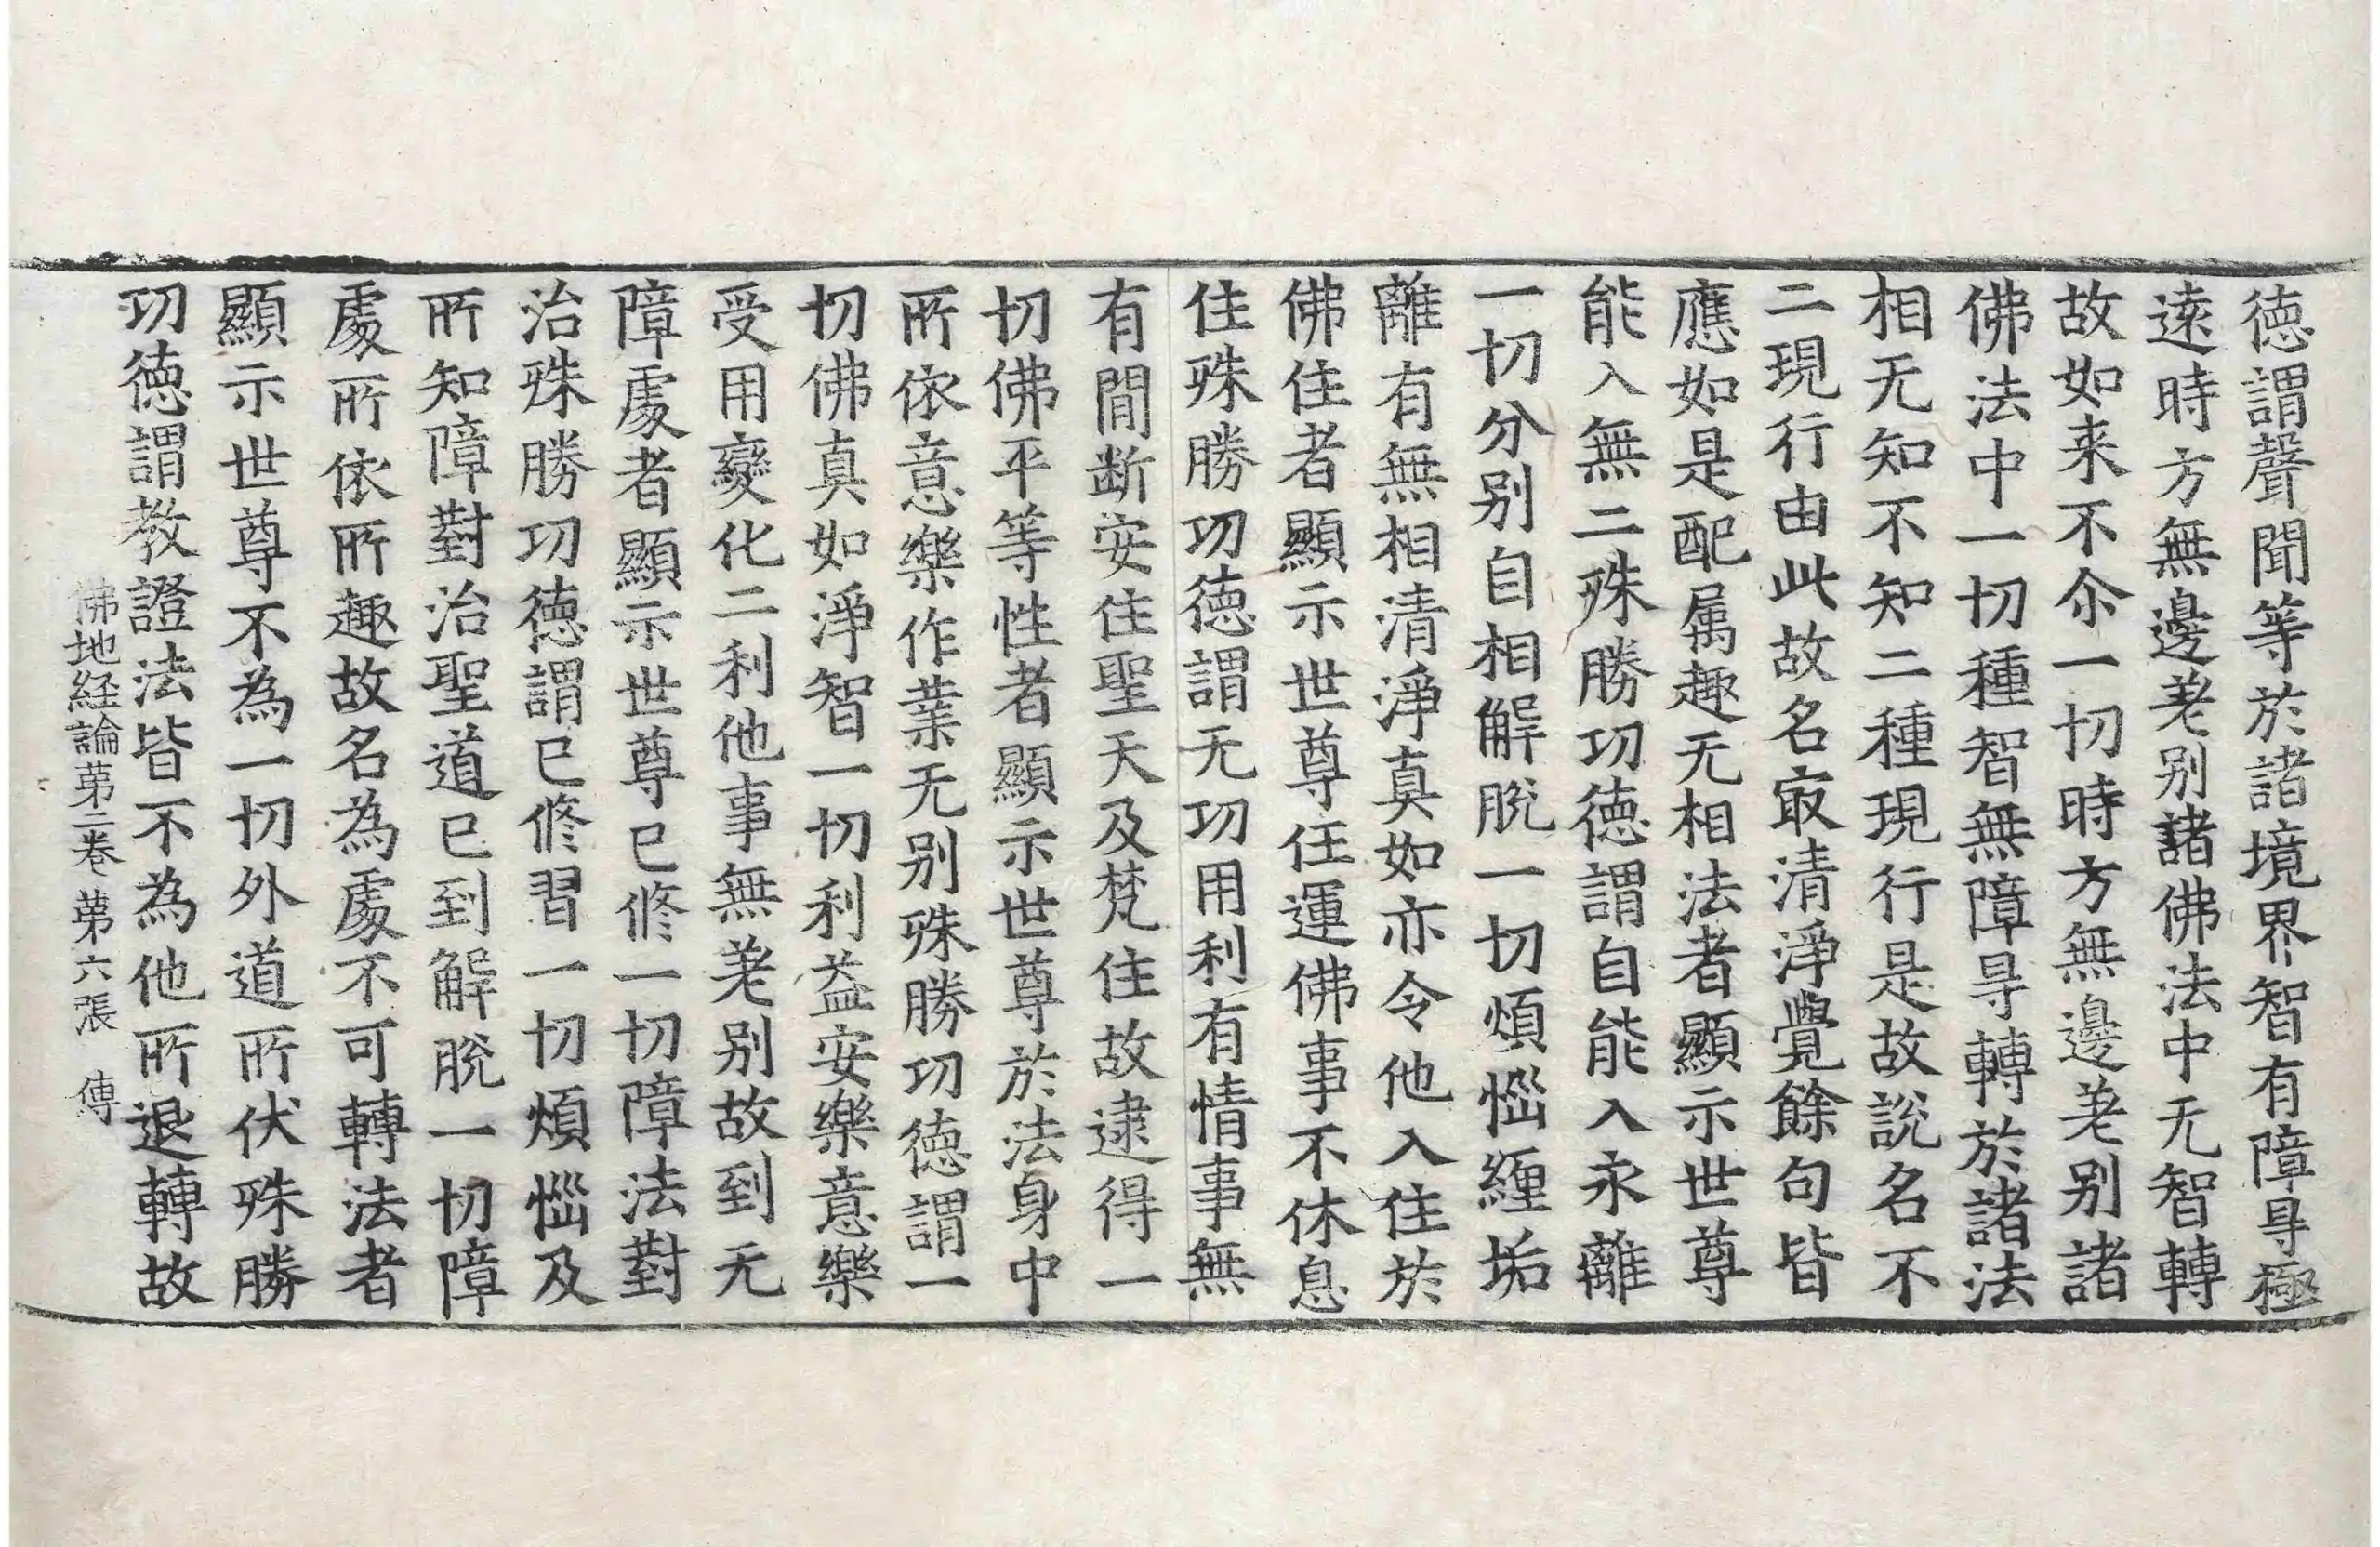 德謂聲聞等於諸境界智有障㝵極
遠時方無邊差别諸佛法中无智轉
故如来不尒一切時方無邊差别諸
佛法中一切種智無障㝵轉於諸法
相无知不知二種現行是故說名不
二現行由此故名㝡清淨覺餘句皆
應如是配属趣无相法者顯示世尊
能入無二殊勝功德謂自能入永離
一切分别自相解脫一切煩惱纏垢
離有無相清淨真如亦令他入住於
佛住者顯示世尊任運佛事不休息
住殊勝功德謂无功用利有情事無
有間断安住聖天及梵住故逮得一
切佛平等性者顯示世尊於法身中
所依意樂作業无别殊勝功德謂一
切佛真如淨智一切利益安樂意樂
受用變化二利他事無差别故到无
障處者顯示世尊已修一切障法對
治殊勝功德謂已修習一切煩惱及
所知障對治聖道已到解脫一切障
處所依所趣故名為處不可轉法者
顯示世尊不為一切外道所伏殊勝
功德謂教證法皆不為他所退轉故
佛地経論第二卷 第六張 傳